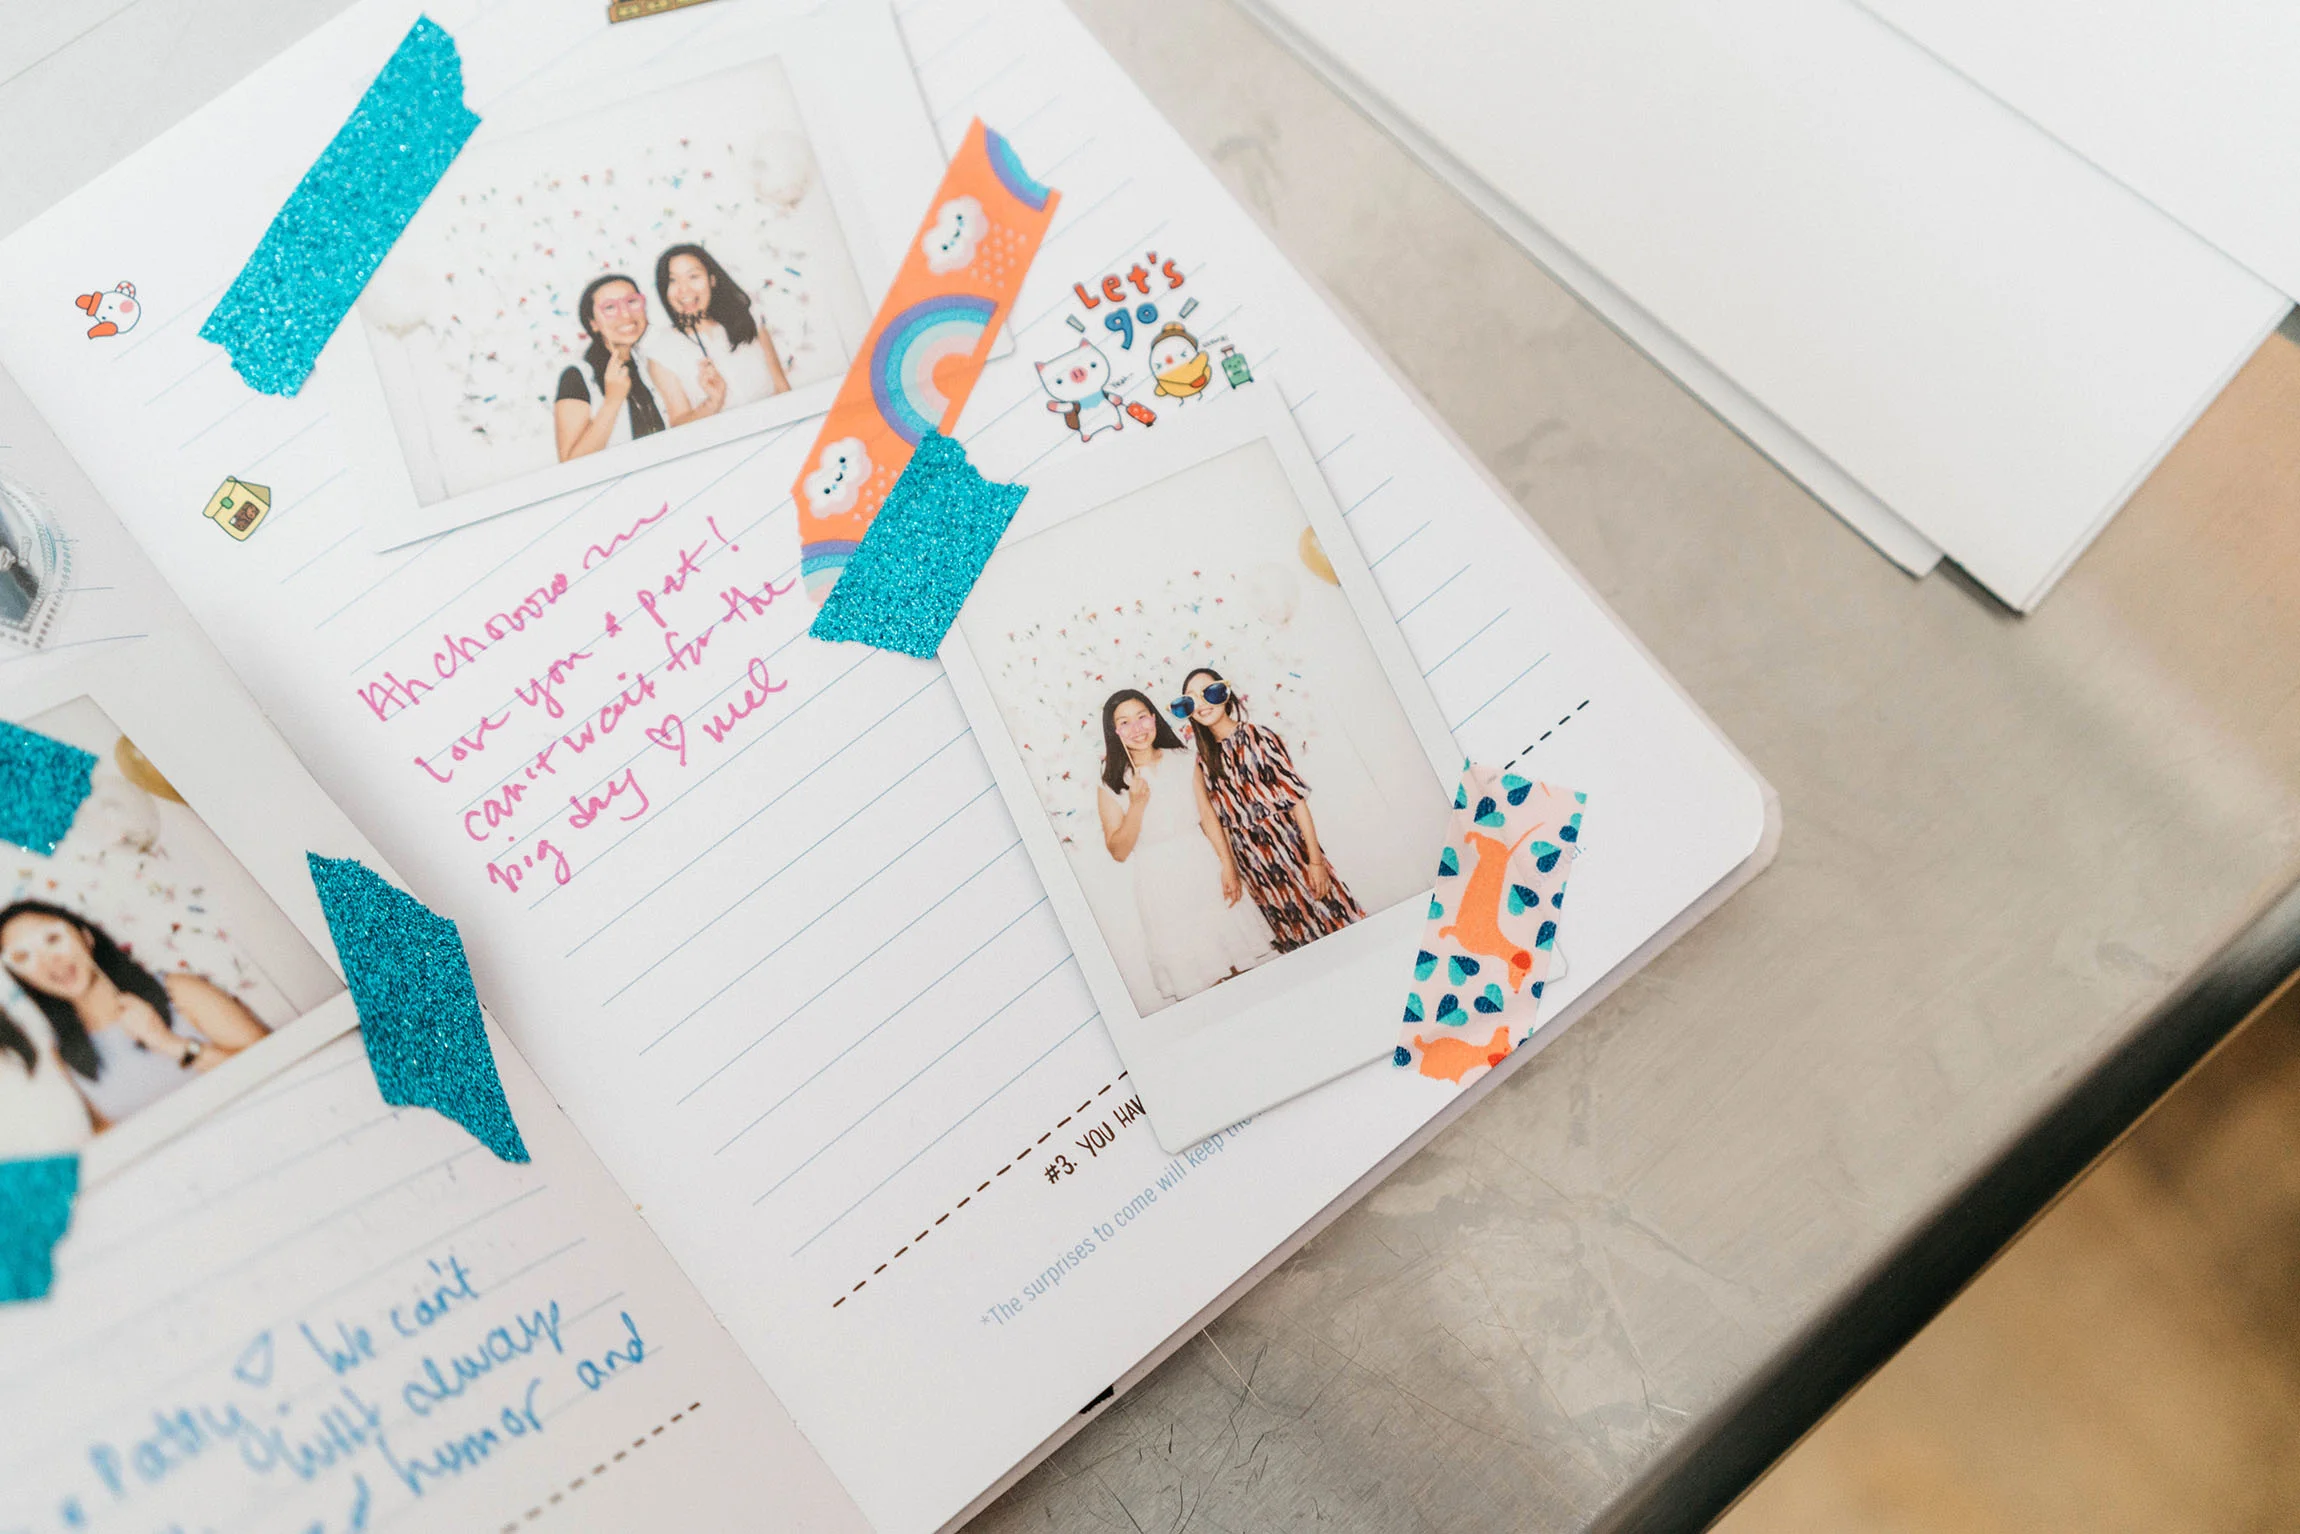 Let's
go
Ahchoooo
Love you & pat!
can't wait for the
big day ♡ mel
#3. YOU HAV
*The surprises to come will keep the
Patty ♡ We can't
always
humor and